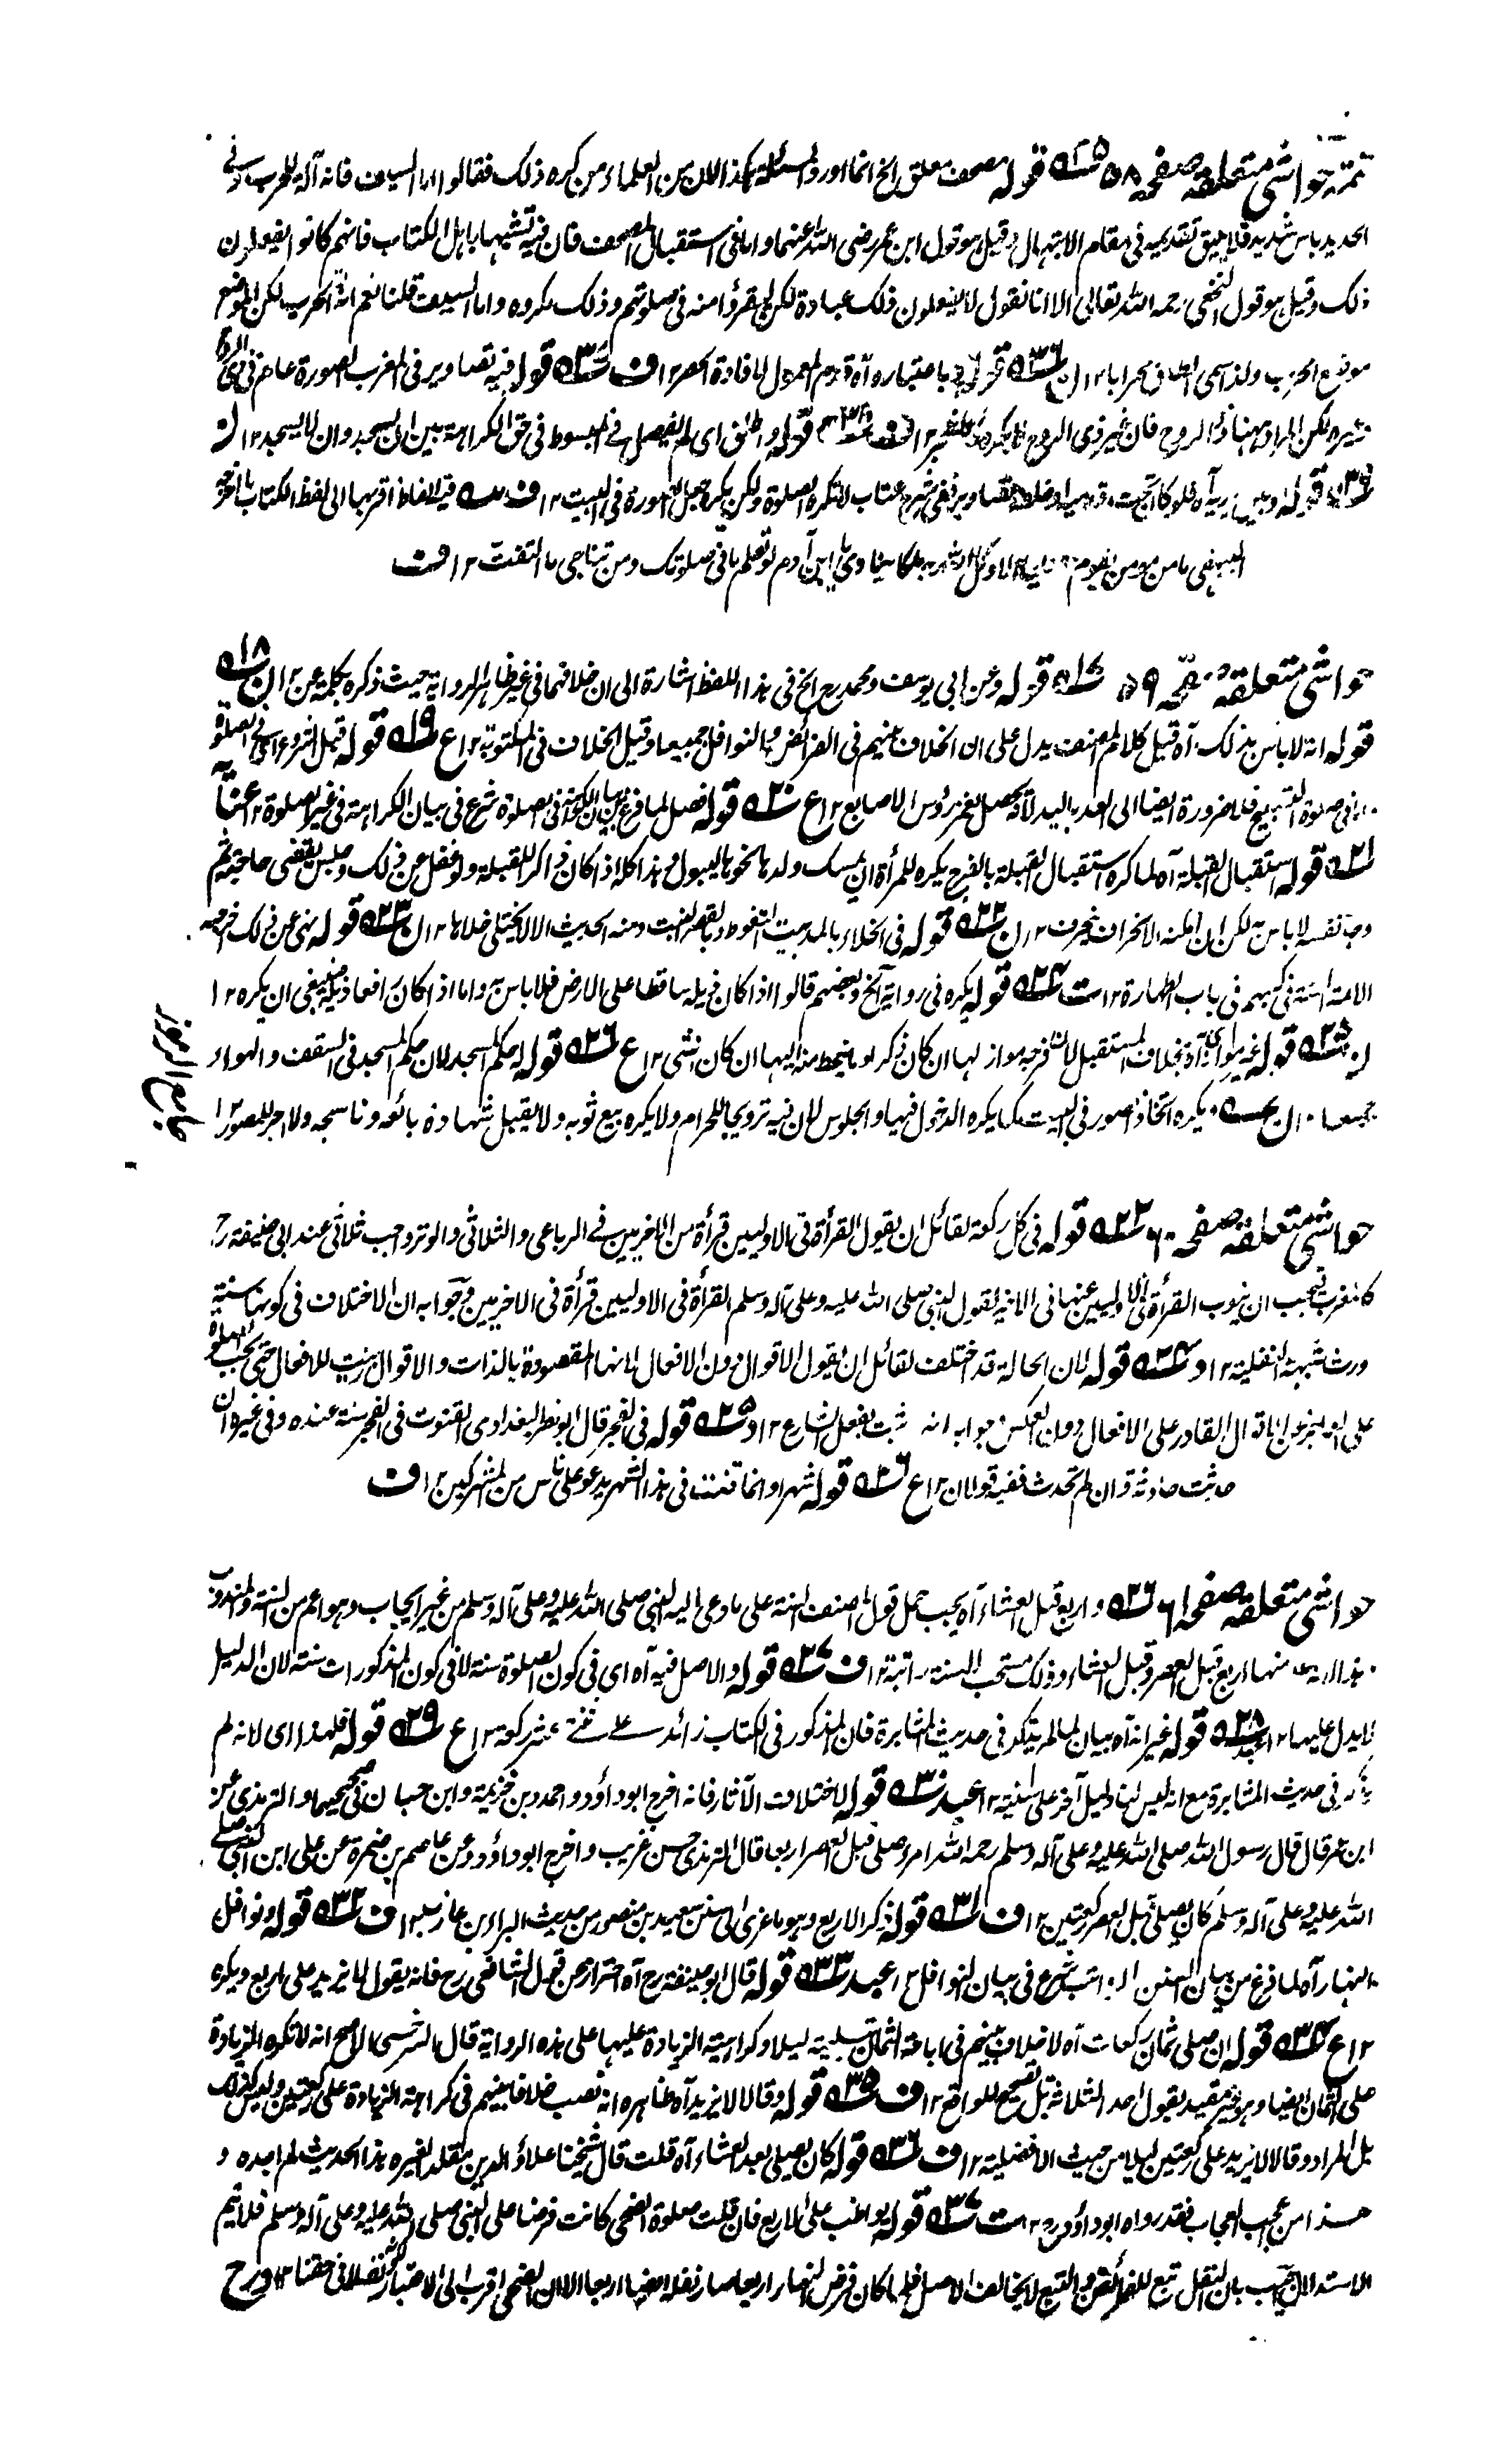 تتمہ حواشی متعلقہ صفحہ ۵۸ ۳۵ قوله مصحف معلق الخ انما اورد المسئلة هكذا لان من العلماء من كره ذلك فقالوا اما السيف فانه آلة للحرب وفی
الحديد بأس شديد فلا يليق تقديمه فی مقام الابتهال وقيل هو قول ابن عمر رضی الله عنهما واما فی استقبال المصحف فان فيه تشبها باهل الكتاب فانهم كانوا يفعلون
ذلك وقيل هو قول النخعی رحمه الله تعالی الا انا نقول لا يفعلون ذلك عبادة لكن ليقرؤا منه فی صلوتهم وذلك مكروه واما السيف قلنا نعم انه آلة الحرب لكن الموضع
موضع الحرب ولذا سمی محرابا ۱۲ ن ۳۶ قوله باعتباره آه قدم المعمول لافادة الحصر ۱۲ ف ۳۷ قوله فيه تصاوير فی المغرب الصورة عام فی ذی الروح
وغيره لكن المراد ههنا ذو الروح فان غير ذی الروح لا يكره ۱۲ ف ۳۸ قوله واطلق ای لم يفصل فی المبسوط فی حق الكراهة بين ان يسجد وان لا يسجد ۱۲ ن
۳۹ قوله وبين يديه آه فلو كانت تحت قدميه او خلفه تصاوير ففی شرح عتاب لا تكره الصلوة ولكن يكره جعل الصورة فی البيت ۱۲ ف فيه الفاظ اقربها الی لفظ الكتاب ما اخرجه
البيهقی ما من مؤمن يقوم الا وكل الله به ملكا ينادی يا ابن آدم لو تعلم ما فی صلوتك ومن تناجی ما التفت ۱۲ ف
حواشی متعلقہ صفحہ ۵۹ ۱۷ قوله وعن ابی يوسف ومحمد رح الخ فی هذا اللفظ اشارة الی ان خلافهما فی غير ظاهر الرواية حيث ذكره بكلمة عن ۱۲ ن ۱۸
قوله انه لا باس بذلك آه قيل كلام المصنف يدل علی ان الخلاف بينهم فی الفرائض والنوافل جميعا وقيل الخلاف فی المكتوبة ۱۲ ع ۱۹ قوله قبل الشروع ای فی الصلوة
وفی صلوة التسبيح فلا ضرورة ايضا الی العد باليد لانه يحصل بغمز رؤس الاصابع ۱۲ ع ۲۰ قوله فصل لما فرغ من بيان الكراهة فی الصلوة شرع فی بيان الكراهة فی غير الصلوة ۱۲ عناية
۲۱ قوله استقبال القبلة آه لما كره استقبال القبلة بالفرج يكره للمرأة ان يمسك ولدها نحوها ليبول وهذا كله اذا كان ذاكرا للقبلة ولو غفل عن ذلك وجلس يقضی حاجته ثم
وجد نفسه لا باس به لكن ان امكنه الانحراف ينحرف ۱۲ ن ۲۲ قوله فی الخلاء بالمد بيت التغوط وبالقصر النبت ومنه الحديث الا لا يختلی خلاها ۱۲ ن ۲۳ قوله نهی عن ذلك اخرجه
الائمة الستة فی كتبهم فی باب الطهارة ۱۲ ت ۲۴ قوله يكره فی رواية الخ وبعضهم قالوا اذا كان ذيله ساقطا علی الارض فلا باس به واما اذا كان رافعا ذيله فينبغی ان يكره ۱۲
ن ۲۵ قوله غير مواز آه بخلاف المستقبل لان فرجه مواز لها ان كان ذكرا وما ينحط منه اليها ان كان انثی ۱۲ ع ۲۶ قوله له حكم المسجد لان حكم المسجد فی السقف والهواء
جميعا ۱۲ ن ۲۷ ويكره اتخاذ الصور فی البيت كما يكره الدخول فيها والجلوس لان فيه ترويجا للحرام ولا يكره بيع ثوبه ولا يقبل شهادة بائعه وناسجه ولا اجر للمصور ۱۲
جامع الرموز
حواشی متعلقہ صفحہ ۶۰ ۲۳ قوله فی كل ركعة لقائل ان يقول القرأة فی الاوليين قرأة من الاخريين فی الرباعی والثلاثی والوتر واجب ثلاثی عند ابی حنيفة رح
كالمغرب فيجب ان ينوب القرأة فی الاوليين عنها فی الثالثة لقول النبی صلی الله عليه وعلی آله وسلم القرأة فی الاوليين قرأة فی الاخريين وجوابه ان الاختلاف فی كونها سنة
ورث شبهة النفلية ۱۲ د ۲۴ قوله لان الحالة قد اختلفت لقائل ان يقول الاقوال دون الافعال لانها المقصودة بالذات والاقوال زينت للافعال حتی يجب الصلوة
علی العاجز عن الاقوال القادر علی الافعال دون العكس جوابه انه ثبت بفعل الشارع ۱۲ د ۲۵ قوله فی الفجر قال ابو نصر البغدادی القنوت فی الفجر سنة عنده وفی غيره ان
حدثت حادثة وان لم تحدث ففيه قولان ۱۲ ع ۲۶ قوله شهرا وانما قنت فی هذا الشهر يدعو علی ناس من المشركين ۱۲ ف
حواشی متعلقہ صفحہ ۶۱ ۲۶ واربع قبل العشاء آه يجب حمل قول المصنف السنة علی ما دعی اليه النبی صلی الله عليه وعلی آله وسلم من غير ايجاب وهو اعم من السنة والمندوب
منها اربع قبل العصر وقبل العشاء وذلك مستحب لا سنة راتبة ۱۲ ف ۲۷ قوله والاصل فيه آه ای فی كون الصلوة سنة لا فی كون المذكورات سنة لان الدليل
لا يدل عليها ۱۲ عبد ۲۸ قوله غير انه آه بيان لما لم يذكر فی حديث المثابرة فان المذكور فی الكتاب زائد علی ثنتی عشر ركعة ۱۲ ع ۲۹ قوله فلهذا ای لانه لم
يذكر فی حديث المثابرة مع انه ليس لنا دليل آخر علی سنيته ۱۲ عبد ۳۰ قوله لاختلاف الآثار فانه اخرج ابو داؤد واحمد وبن خزيمة وابن حبان فی صحيحيهما والترمذی عن
ابن عمر قال قال رسول الله صلی الله عليه وعلی آله وسلم رحم الله امرء صلی قبل العصر اربعا قال الترمذی حسن غريب واخرج ابو داؤد عن عاصم بن ضمرة عن علی ان النبی صلی
الله عليه وعلی آله وسلم كان يصلی قبل العصر ركعتين ۱۲ ف ۳۱ قوله ذكر الاربع وهو ما عزی الی سنن سعيد بن منصور من حديث البراء بن عازب ۱۲ ف ۳۲ قوله ونوافل
النهار آه لما فرغ من بيان السنن الرواتب شرع فی بيان النوافل ۱۲ عبد ۳۳ قوله قال ابو حنيفة رح آه احتراز عن قول الشافعی رح فانه يقول لا يزيد علی اربع ويكره
۱۲ ع ۳۴ قوله ان صلی ثمان ركعات آه لا خلاف بينهم فی اباحة الثمان بتسليمة ليلا وكراهية الزيادة عليها علی هذه الرواية قال السرخسی الاصح انه لا تكره الزيادة
علی الثمان ايضا وهو غير مقيد بقول احد الثلاثة بل تصحيح للواقع ۱۲ ف ۳۵ قوله وقالا لا يزيد آه ظاهره انه نصب خلافا بينهم فی كراهة الزيادة علی ركعتين وليس كذلك
بل المراد وقالا لا يزيد علی ركعتين ليلا من حيث الافضلية ۱۲ ف ۳۶ قوله كان يصلی بعد العشاء آه قلت قال شيخنا علاؤ الدين مقلدا لغيره هذا الحديث لم اجده و
هذا من عجب العجاب فقد رواه ابو داؤد ۱۲ ت ۳۷ قوله يواظب علی الاربع فان قلت صلوة الضحی كانت فرضا علی النبی صلی الله عليه وعلی آله وسلم فلا يتم
الاستدلال اجيب بان النفل تبع للفرائض والتبع لا يخالف الاصل فلما كان فرض النهار اربعا صار نفله ايضا اربعا الا ان الضحی اقرب الی الاعتبار نفلا فی حقنا ۱۲ د رح